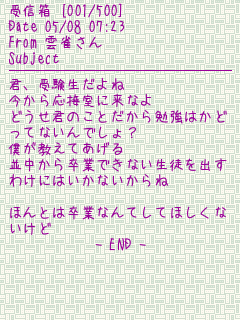 受信箱 [001/500]
Date 05/08 07:23
From 雲雀さん
Subject
君、受験生だよね
今から応接室に来なよ
どうせ君のことだから勉強はかど
ってないんでしょ？
僕が教えてあげる
並中から卒業できない生徒を出す
わけにはいかないからね
ほんとは卒業なんてしてほしくな
いけど
- END -